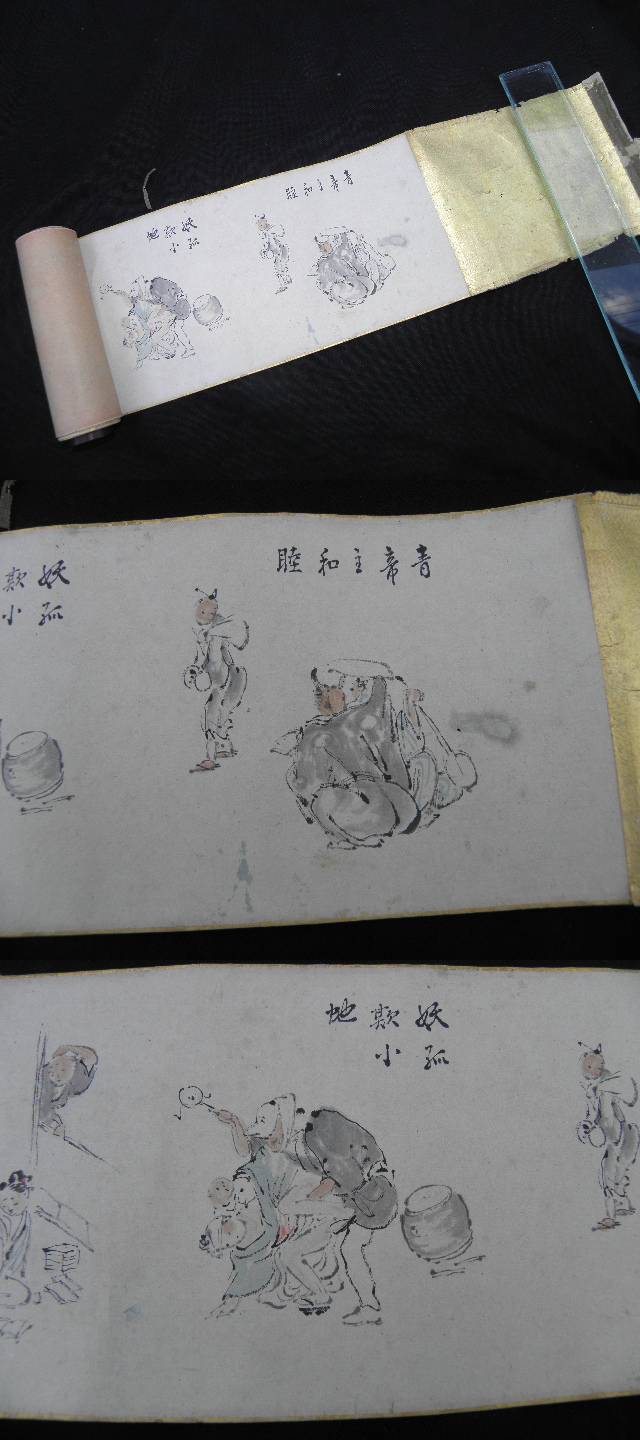 青帝主和睦
妖孤
欺小
地
青帝主和睦
妖孤
欺小
妖孤
欺小
地